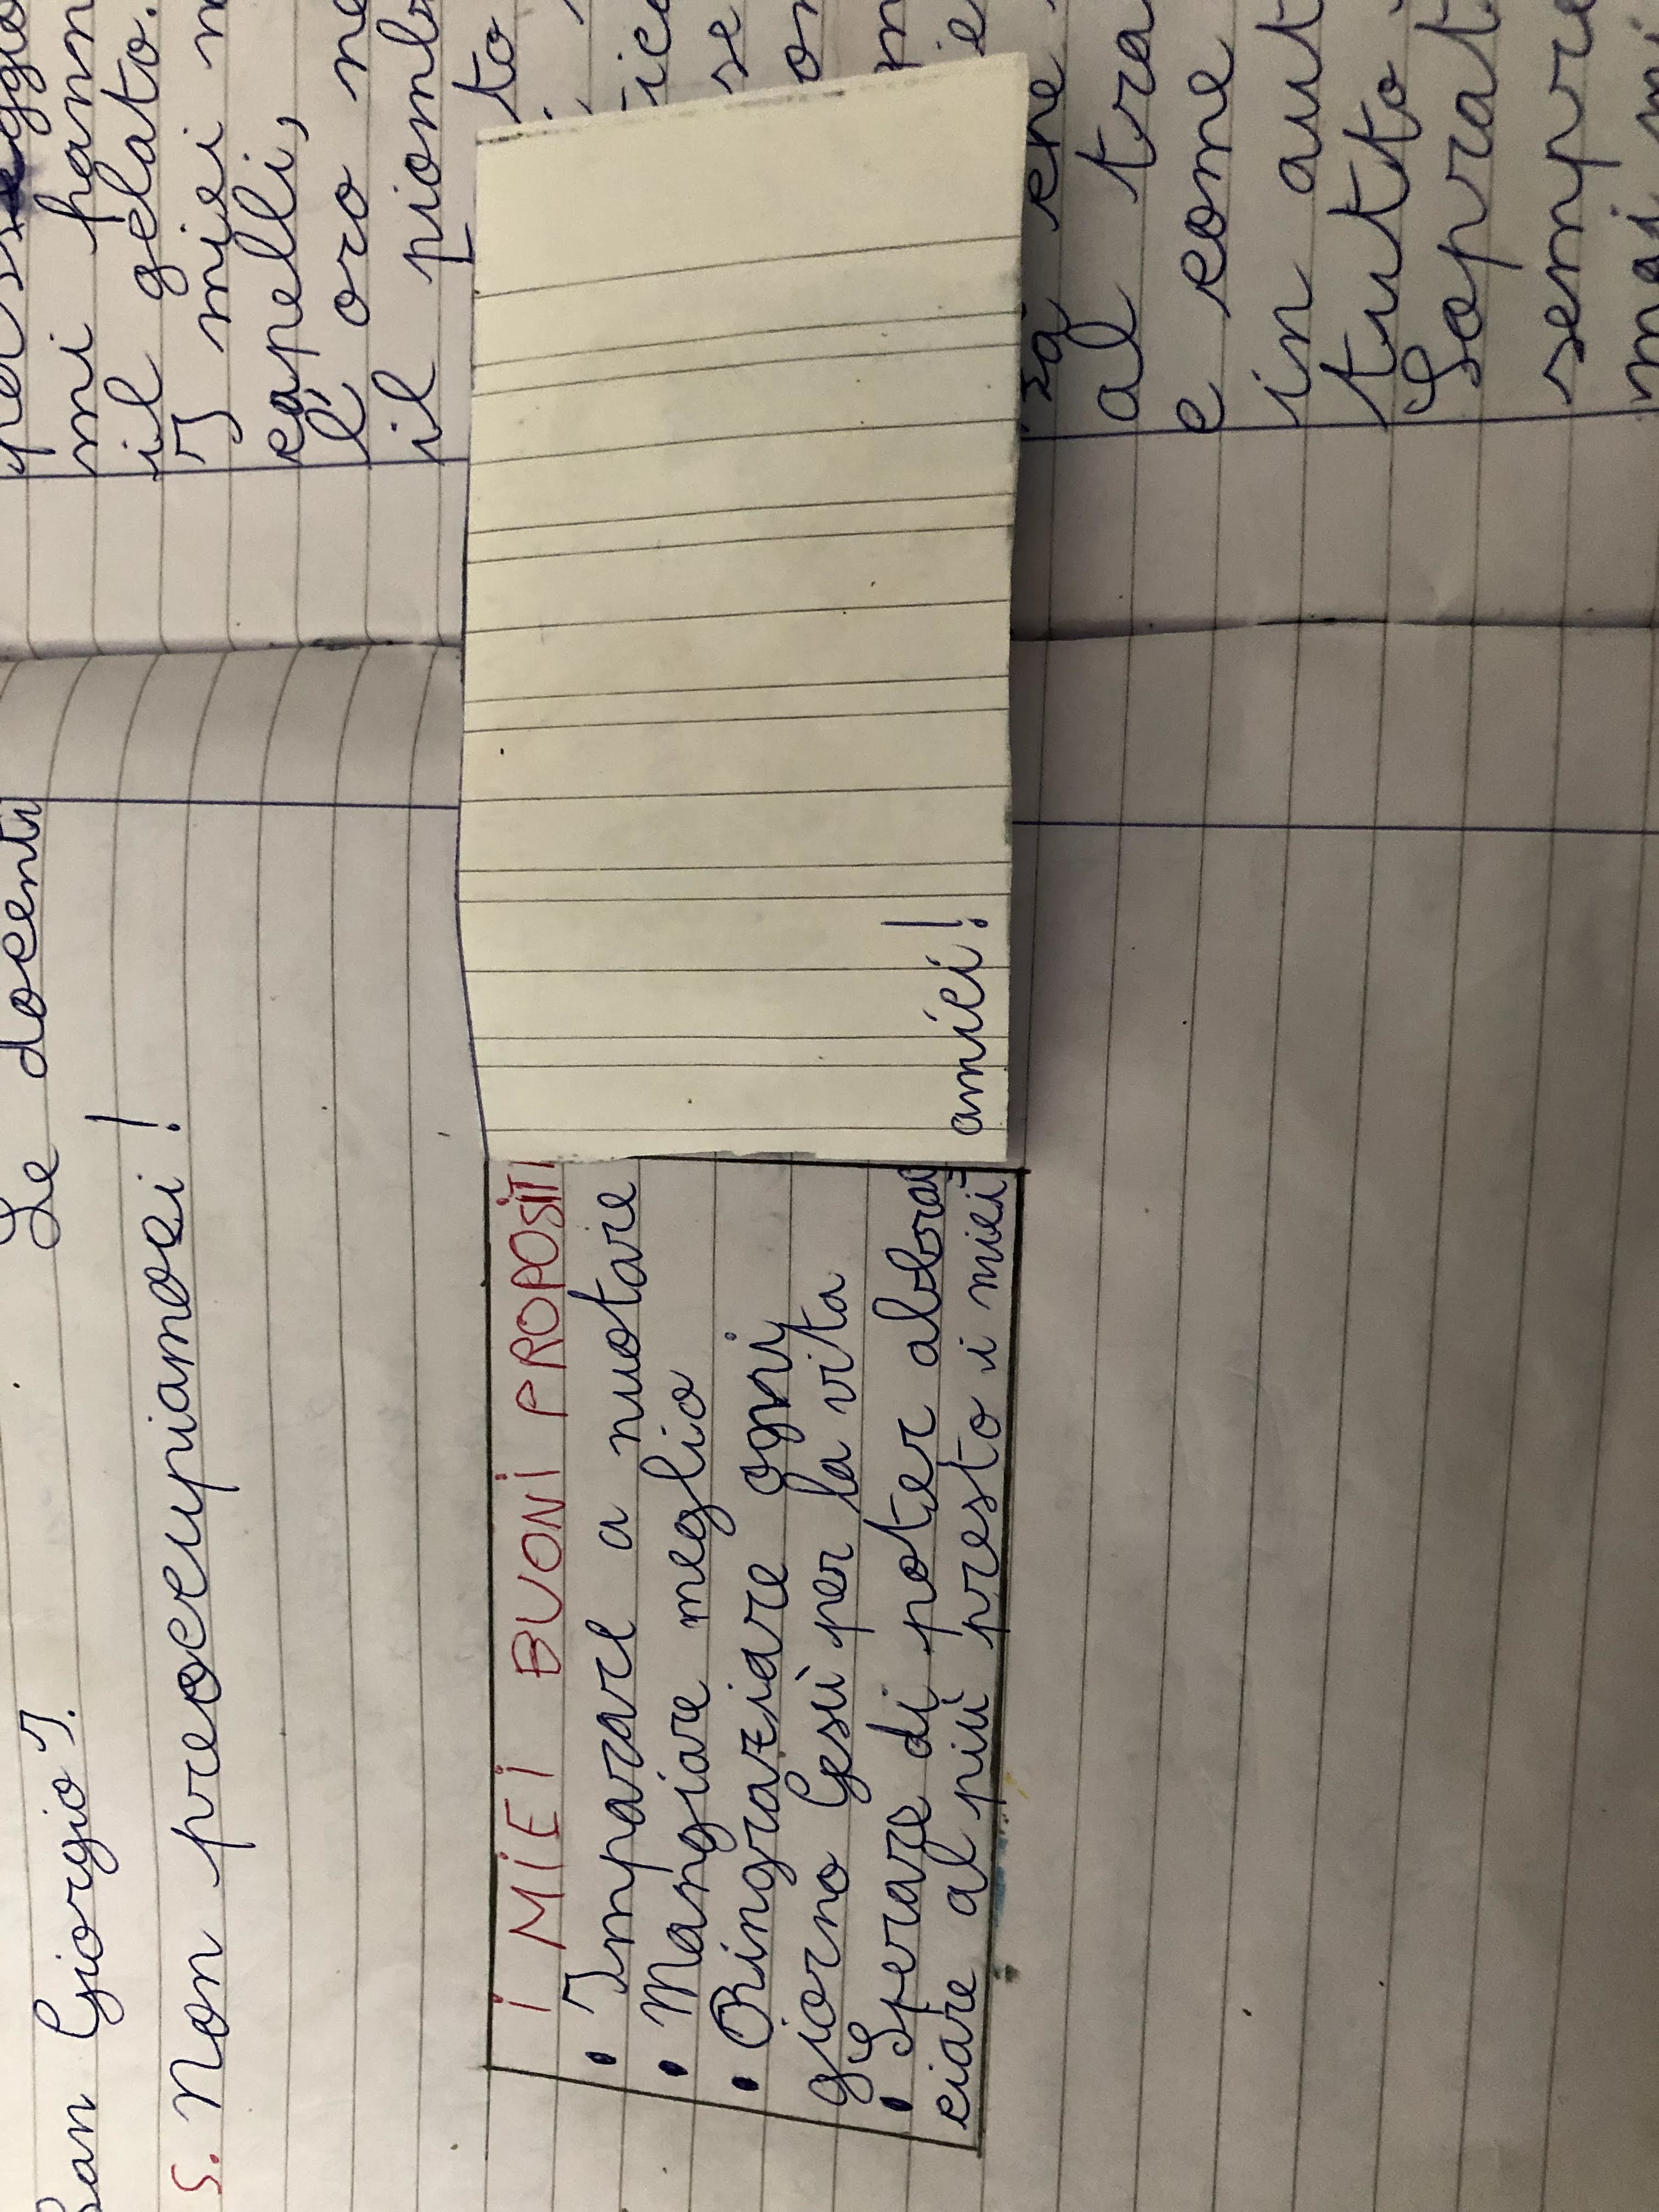 San Giorgio". Le docenti
S. Non preoccupiamoci!
I MIEI BUONI PROPOSITI
• Imparare a nuotare
• Mangiare meglio
• Ringraziare ogni
giorno Gesù per la vita
• Sperare di poter abbrac
ciare al più presto i miei amici!
mi hann
il gelato.
I miei n
capelli,
l'oro ne
il piomb
to
se
al tra
e come
in aut
tutto
Soprat
sempre